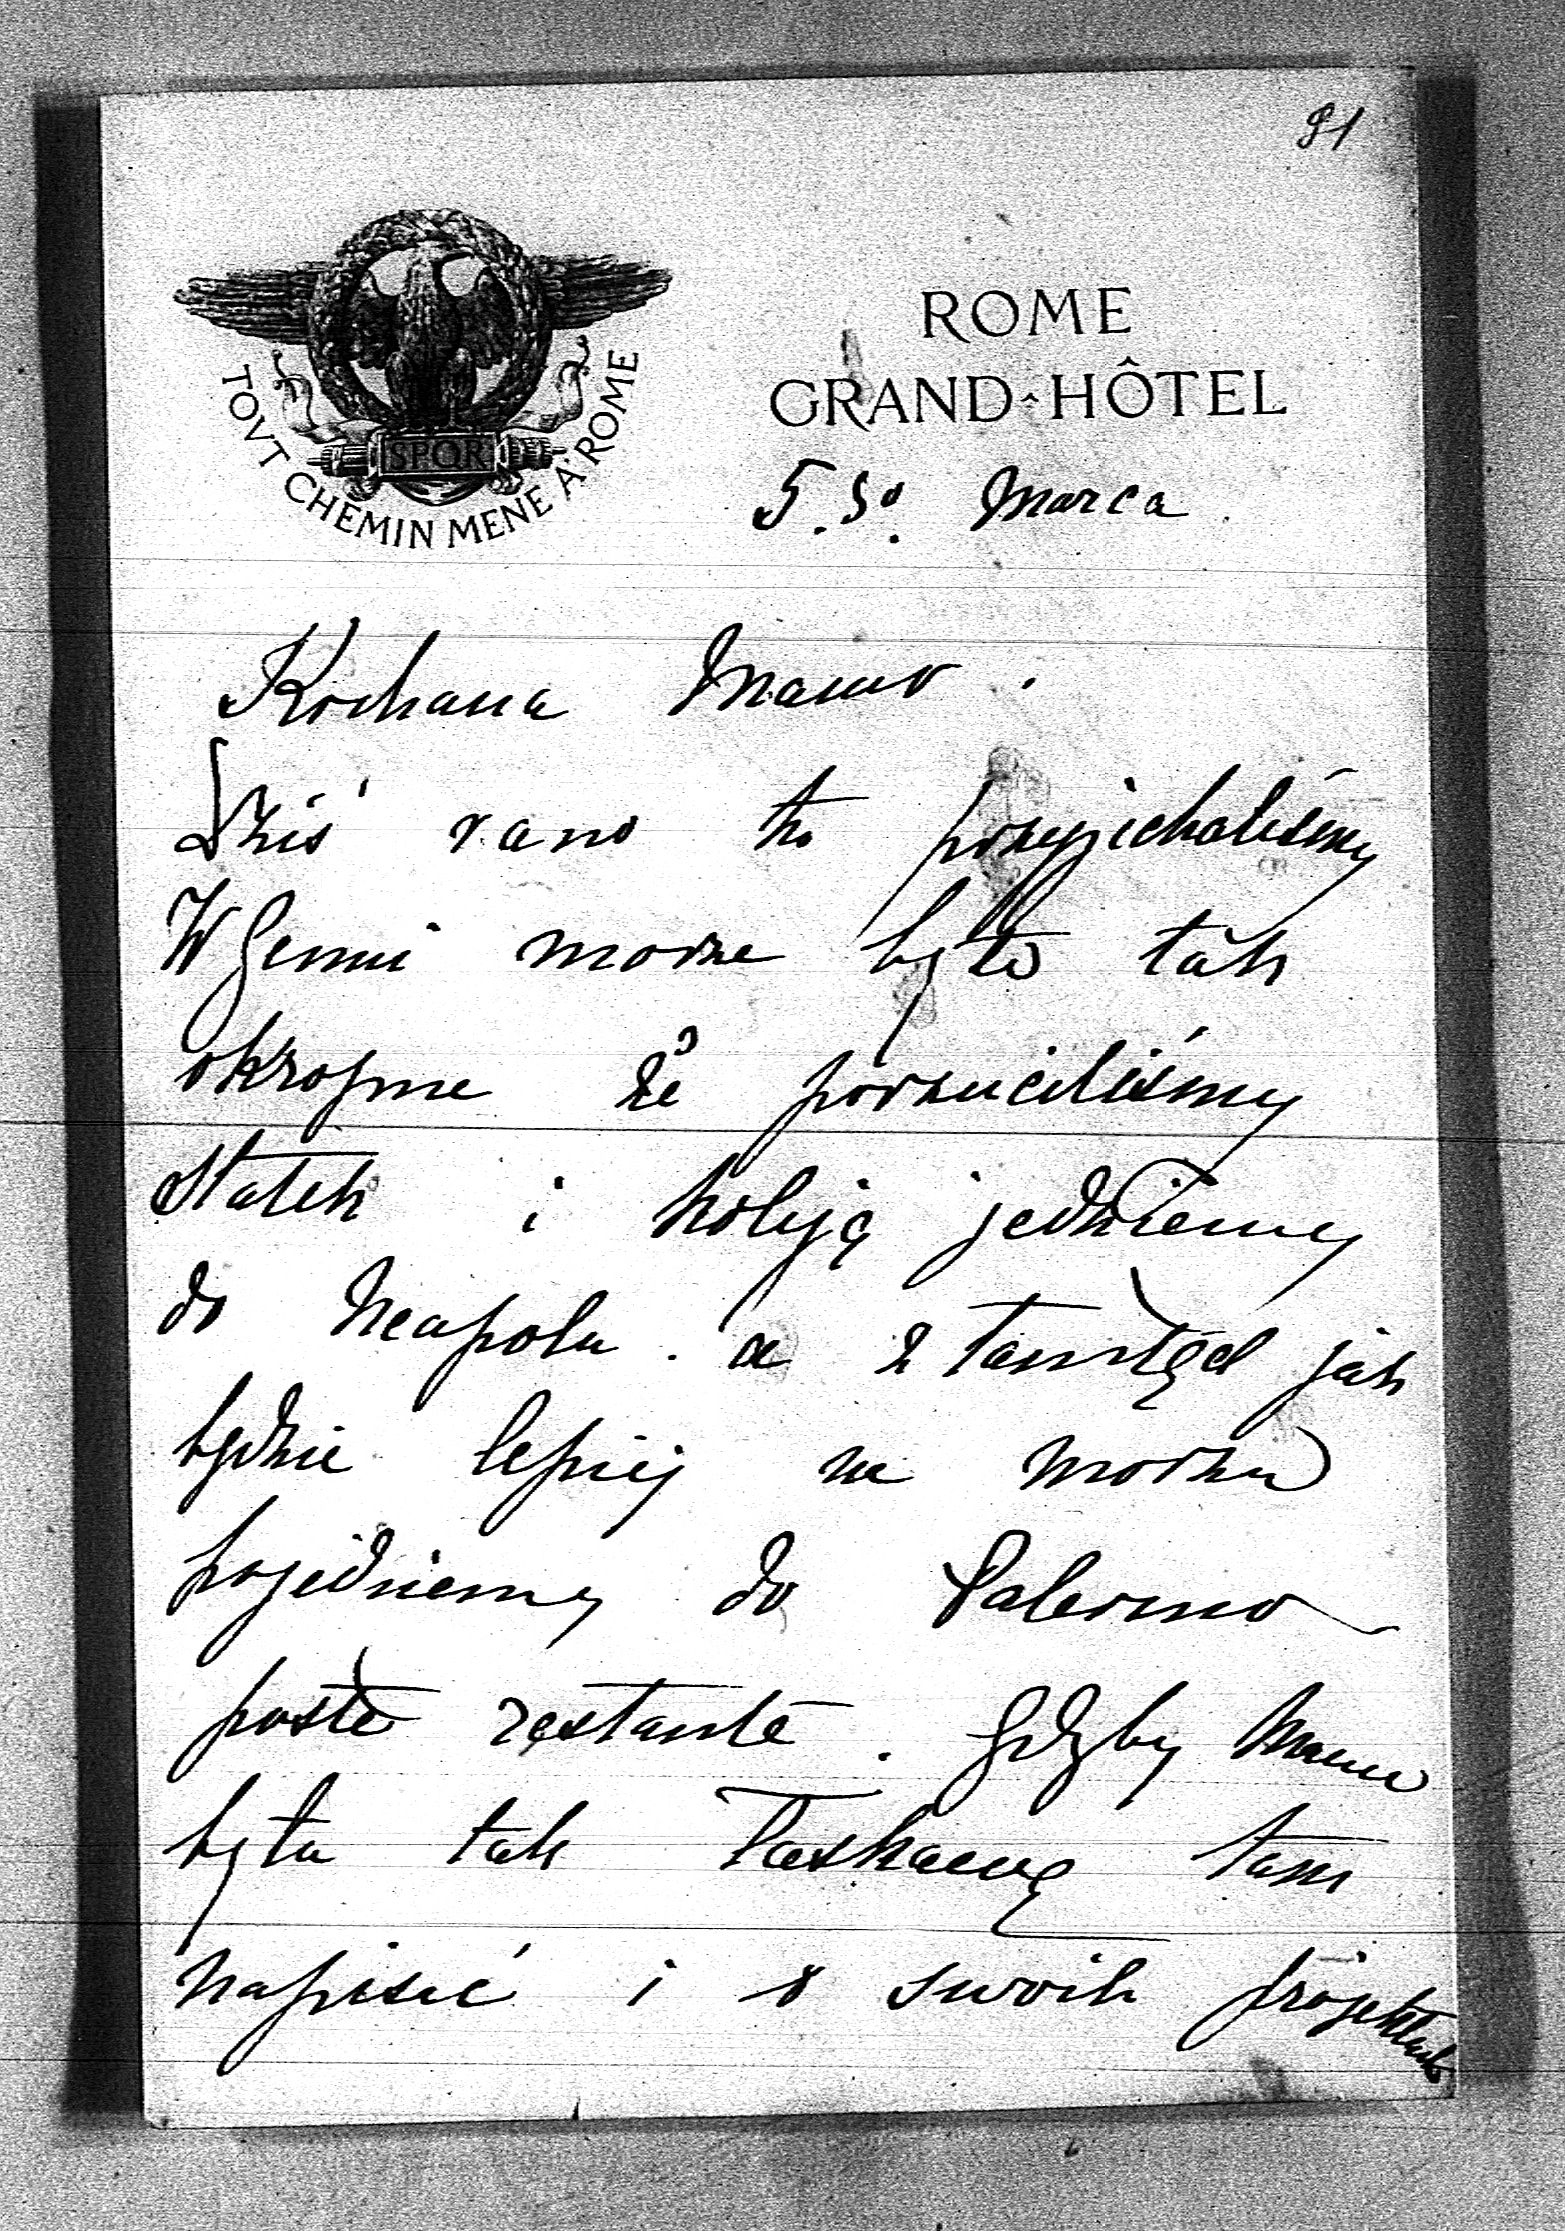 91
ROME
GRAND-HÔTEL
TOVT CHEMIN MENE A ROME
SPQR
5.go. Marca
Kochana Mamo.
Dziś rano tu przyjechaliśmy
W Genui morze było tak
okropne że porzuciliśmy
statek i koleją jedziemy
do Neapolu. a z tamtąd jak
będzie lepiej na morzu
pojedziemy do Palermo
poste restante. Gdyby Mama
była tak łaskawą tam
napisać i o swoich projektach